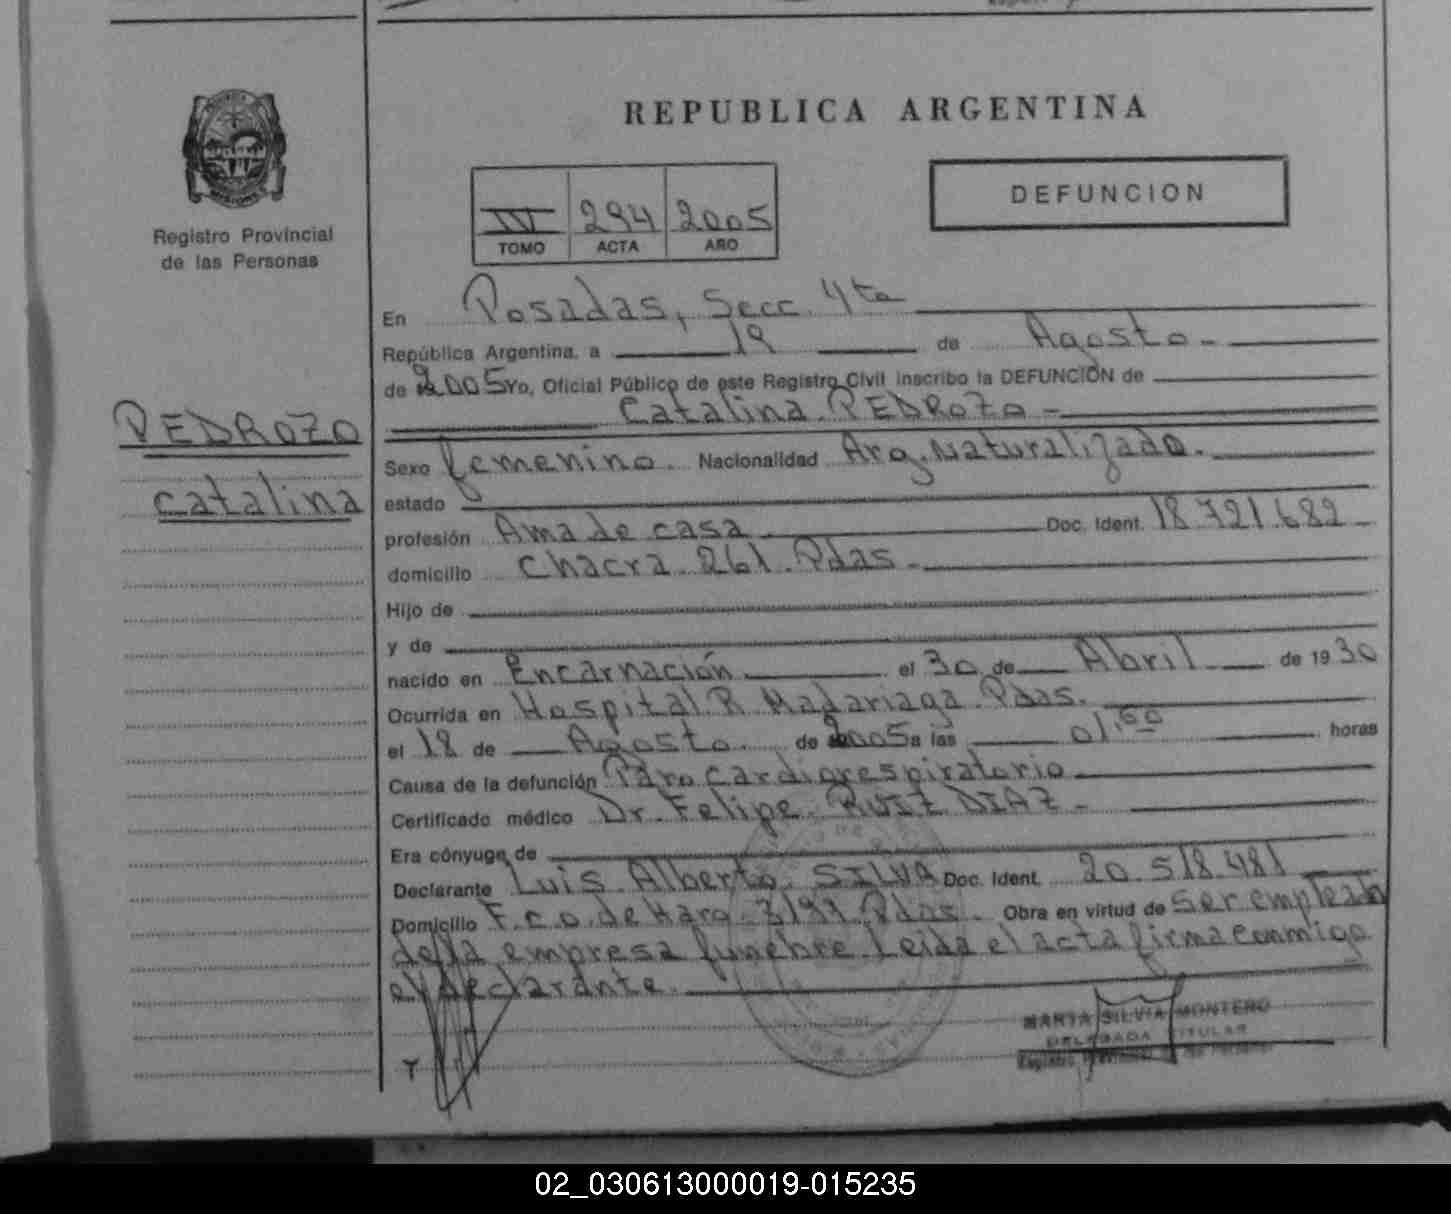 REPUBLICA ARGENTINA
DEFUNCION
IV 294 2005
TOMO ACTA AÑO
Registro Provincial
de las Personas
PEDROZO
catalina
En Posadas, Secc. 4ta
República Argentina, a 19 de Agosto -
de 2005 Yo, Oficial Público de este Registro Civil inscribo la DEFUNCION de
Catalina PEDROZO -
Sexo femenino. Nacionalidad Arg. Naturalizado.
estado
profesión Ama de casa Doc. Ident. 18.721.682 -
domicilio Chacra 261. Pdas -
Hijo de
y de
nacido en Encarnación el 30 de Abril de 1930
Ocurrida en Hospital R. Madariaga. Pdas.
el 18 de Agosto. de 2005 a las 01, horas
Causa de la defunción Paro cardiorespiratorio
Certificado médico Dr. Felipe RUIZ DIAZ -
Era cónyuge de
Declarante Luis Alberto SILVA Doc. Ident. 20.518.481
Domicilio F.c.o. de Haro Pdas. Obra en virtud de ser empleado
de la empresa funebre. Leida el acta firma conmigo
el declarante.
MARTA SILVIA MONTERO
DELEGADA TITULAR
02_030613000019-015235